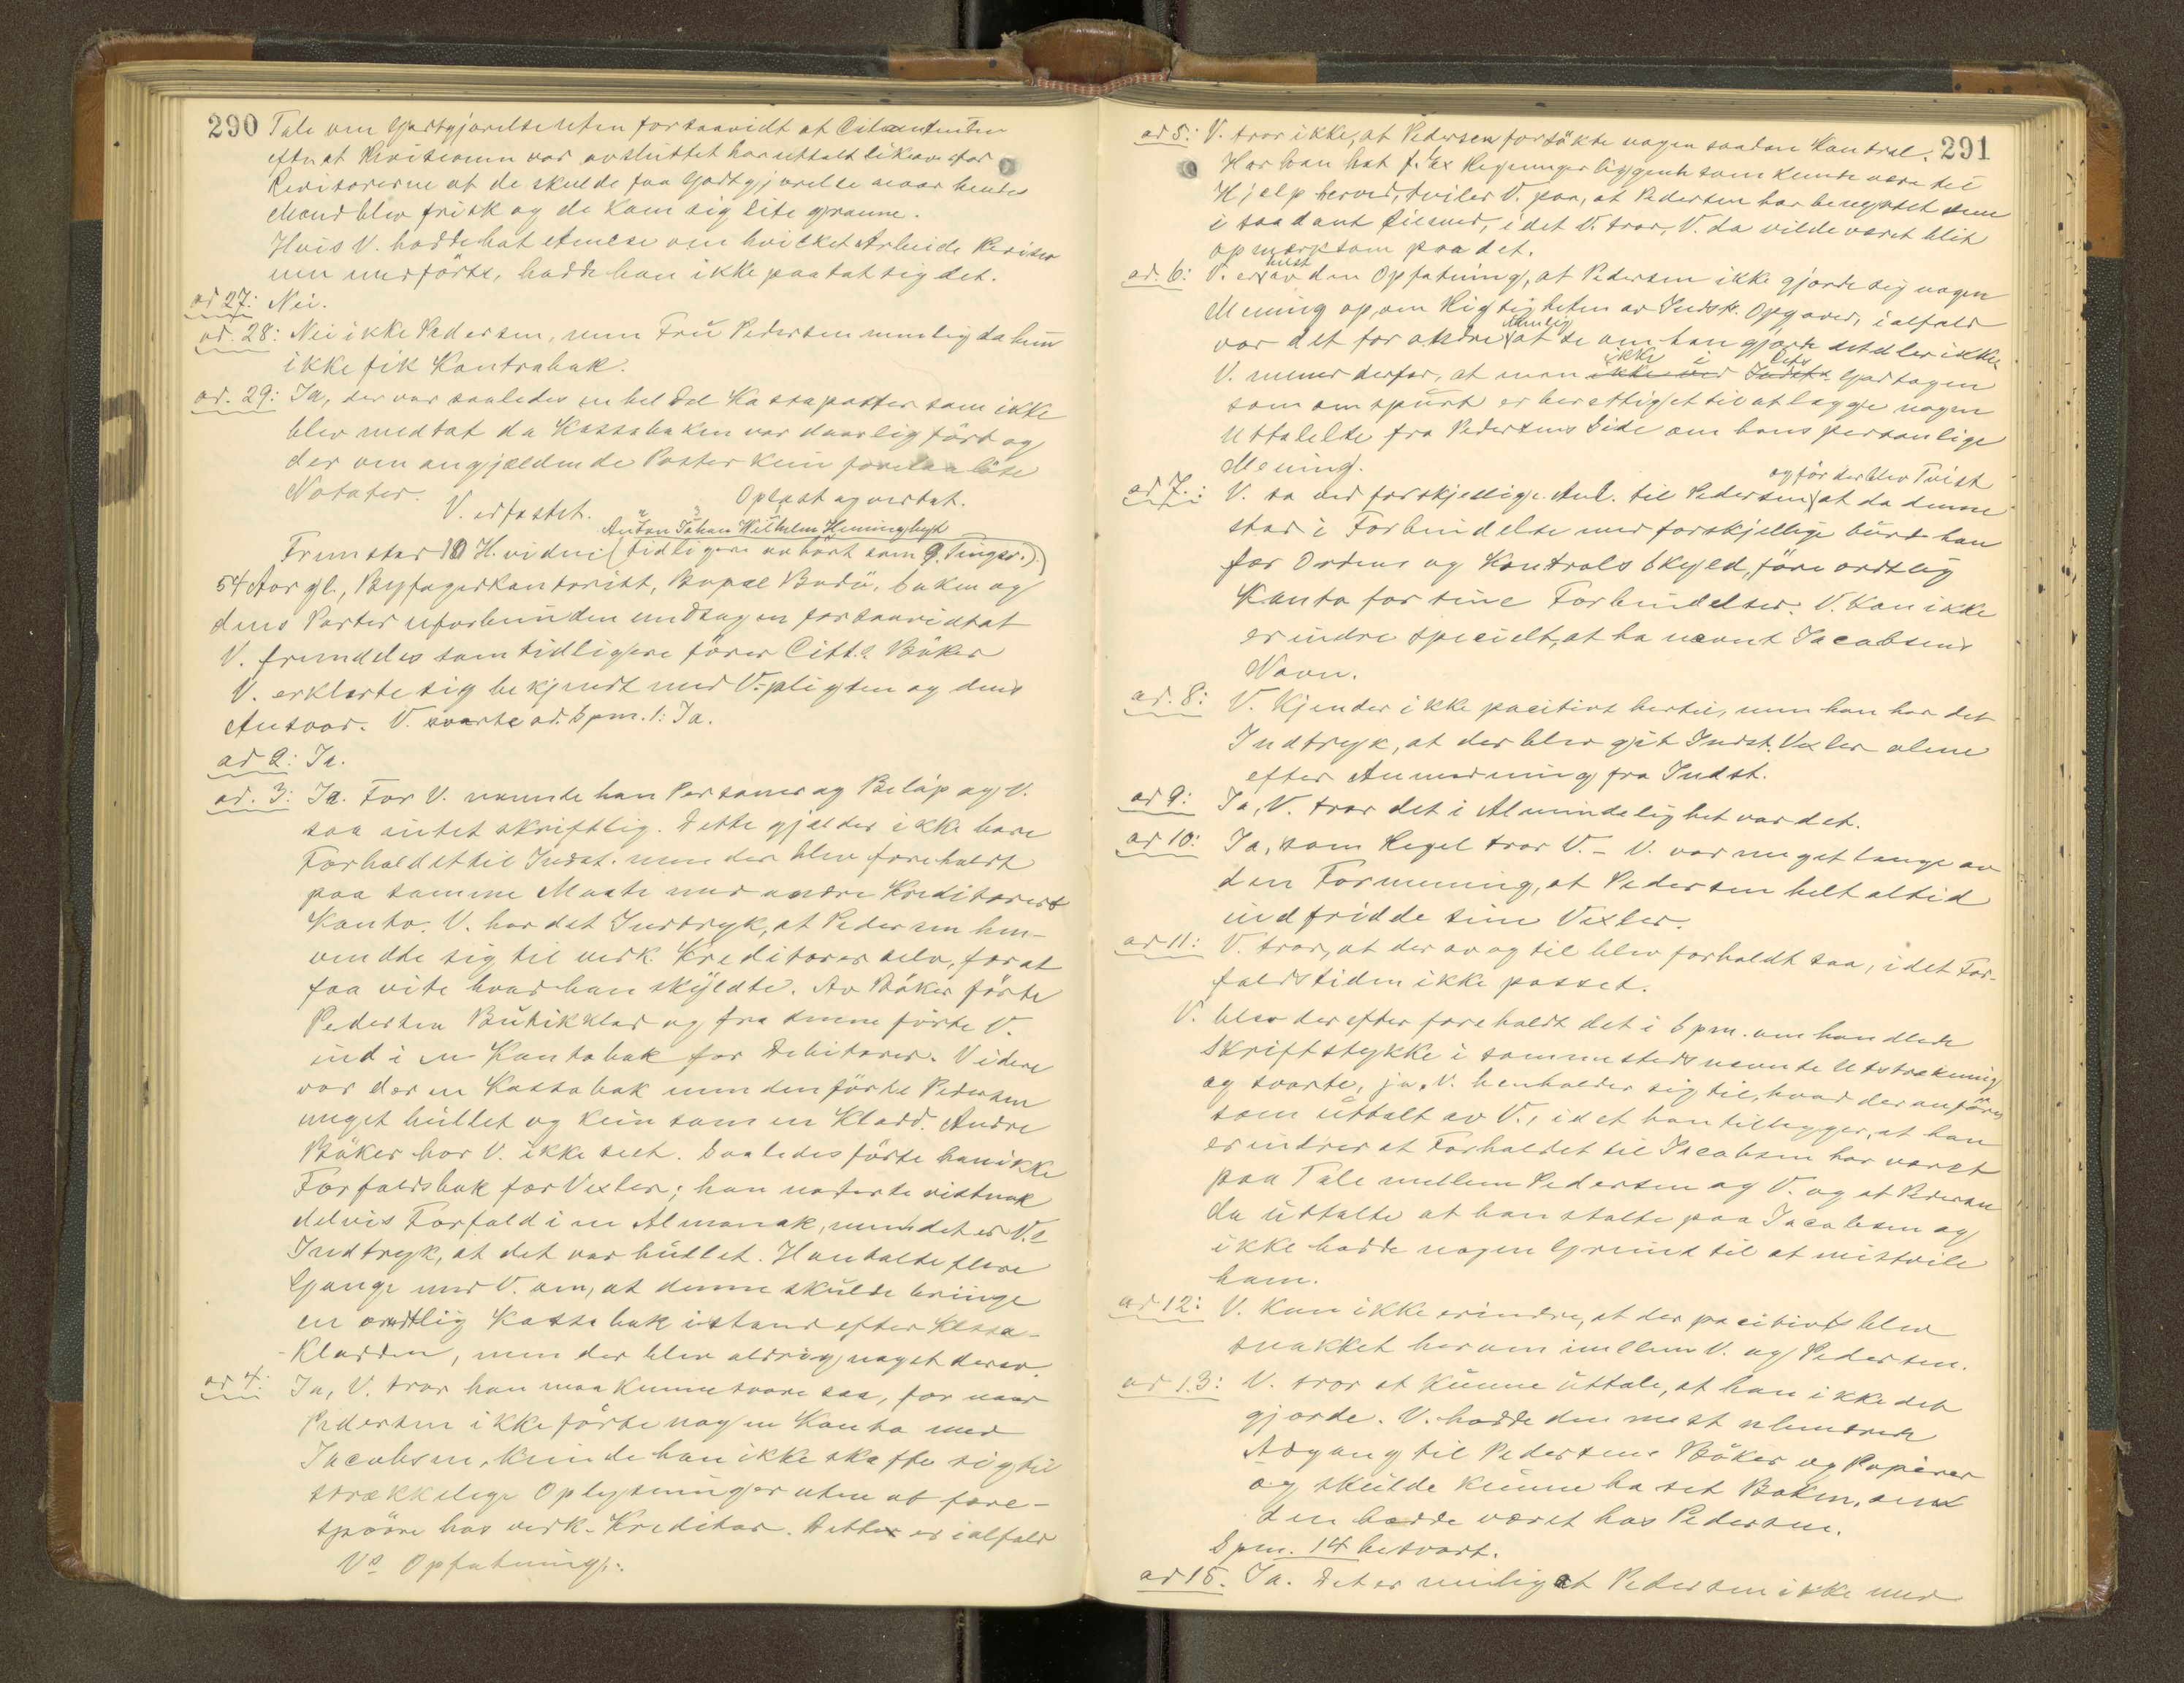 290 Tale om Godtgjørelse uten forsaavidt at Citantinten
efterat Revisionen var avsluttet har uttalt likeoverfor
Revisorerne at de skulde faa Godtgjørelse naar hendes
Mand blev frisk og de kom sig lite granne.
Hvis V. hadde hat Anelse om hvilket Arbeide Revisio
nen medførte, hadde han ikke paatat sig det.
ad 27: Nei.
ad. 28: Nei ikke Pedersen, men Fru Pedersen nemlig da hun
ikke fik Kontrabok.
ad. 29: Ja, der var saaledes en hel Del Kassaposter som ikke
blev medtat da Kassaboken var daarlig ført og
der om angjældende Poster kun forelaa løse
Notater.
V. erfastet. Oplæst og vedtat.
Anton Johan Wilhelm Hemminghyt
Fremstod 10 H. vidne (tidligere avhørt som 9. Tingsv.)
54 Aar gl., Byfogedkontorist, Bopæl Bodø, Saken og
dens Parter uforbunden undtagen forsaavidtat
V. fremdeles som tidligere fører Citt.s Bøker
V. erklærte sig bekjendt med V.-pligten og dens
Ansvar. V. svarte ad. Spm. 1: Ja.
ad 2: Ja.
ad. 3: Ja. For V. nævnte han Personer og Beløp og V.
saa intet skriftlig. Dette gjælder ikke bare
Forholdet til Indst. men der blev forholdt
paa samme Maate med andre Kreditorers
Konto. V. har det Indtryk, at Pedersen hen-
vendte sig til vedk. Kreditorer selv, for at
faa vite hvad han skyldte. Av Bøker førte
Pedersen Butikklad og fra denne førte V.
ind i en Kontobok for Debitorer. Videre
var der en Kassabok men den førte Pedersen
meget hullet og kun som en Kladd. Andre
Bøker har V. ikke seet. Saaledes førte han ikke
Forfaldsbok for Vexler; han noterte vistnok
delvis Forfald i en Almanak, men det er V.s
Indtryk, at det var hullet. Han talte flere
Gange med V. om, at denne skulde bringe
en ordtlig Kassabok istand efter Kassa-
-Kladden, men der blev aldrig noget derav.
ad 4: Ja, V. tror han maa kunne svare saa, for naar
Pedersen ikke førte nogen Konto med
Jacobsen, kunde han ikke skaffe sig til
strækkelige Oplysninger uten at fore-
spørre hos vedk. Kreditor. Dette er ialfald
Vs Opfatning.
291
ad 5: V. tror ikke, at Pedersen forsøkte nogen saadan Kontrol.
Har han hat f. Ex Regninger liggende som kunde være til
Hjælp herved, tviler V. paa, at Pedersen har benyttet dem
i saadant Øiemed, idet V. tror, V. da vilde været blit
opmærksom paa det.
ad. 6: V. er nest av den Opfatning, at Pedersen ikke gjorde sig nogen
Mening op om Rigtigheten av Indst. Opgaver, ialfald
var det for andre umulig at se om han gjorde det eller ikke
V. mener derfor, at man ikke i Citts ikke ved Indsts Godtagen
som omspurt er berettiget til at lægge nogen
Uttalelse fra Pedersens Side om hans personlige
Mening.
ad 7.: V. sa ved forskjellige Anl. til Pedersen og før der blev Tvist at da denne
stod i Forbindelse med forskjellige burde han
for Ordens og Kontrols Skyld, føre ordtlig
Konto for sine Forbindelser. V. kan ikke
erindre specielt, at ha nævnt Jacobsens
Navn.
ad. 8: V. Kjender ikke positivt hertil, men han har det
Indtryk, at der blev git Indst. Vexler alene
efter Anmodning fra Indst.
ad 9: Ja, V. tror det i Almindelighet var det.
ad 10: Ja, som Regel tror V. - V. var meget længe av
den Formening, at Pedersen helt altid
indfridde sine Vexler.
ad 11: V. tror, at der av og til blev forholdt saa, idet For-
faldstiden ikke passet.
V. blev derefter foreholdt det i Spm. omhandlede
Skriftstykke i sammesteds nævnte Utstrækning
og svarte, ja. V. henholder sig til, hvad der anføres
som uttalt av V., idet han tillægger, at han
erindrer at Forholdet til Jacobsen har været
paa Tale mellem Pedersen og V. og at Pedersen
da uttalte at han stolte paa Jacobsen og
ikke hadde nogen Grund til at mistvile
ham.
ad 12: V. kan ikke erindre, at der positivt blev
snakket herom imellem V. og Pedersen.
ad 13: V. tror at kunne uttale, at han ikke det
gjorde. V. hadde den mest uhindrede
Adgang til Pedersens Bøker og Papirer
og skulde kunne ha set Boken, om
den hadde været hos Pedersen.
Spm. 14 besvart.
ad 15. Ja. Det er mulig at Pedersen ikke med